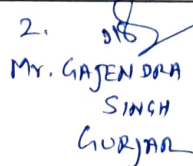 2.
Mr. GAJENDRA
SINGH
GURJAR